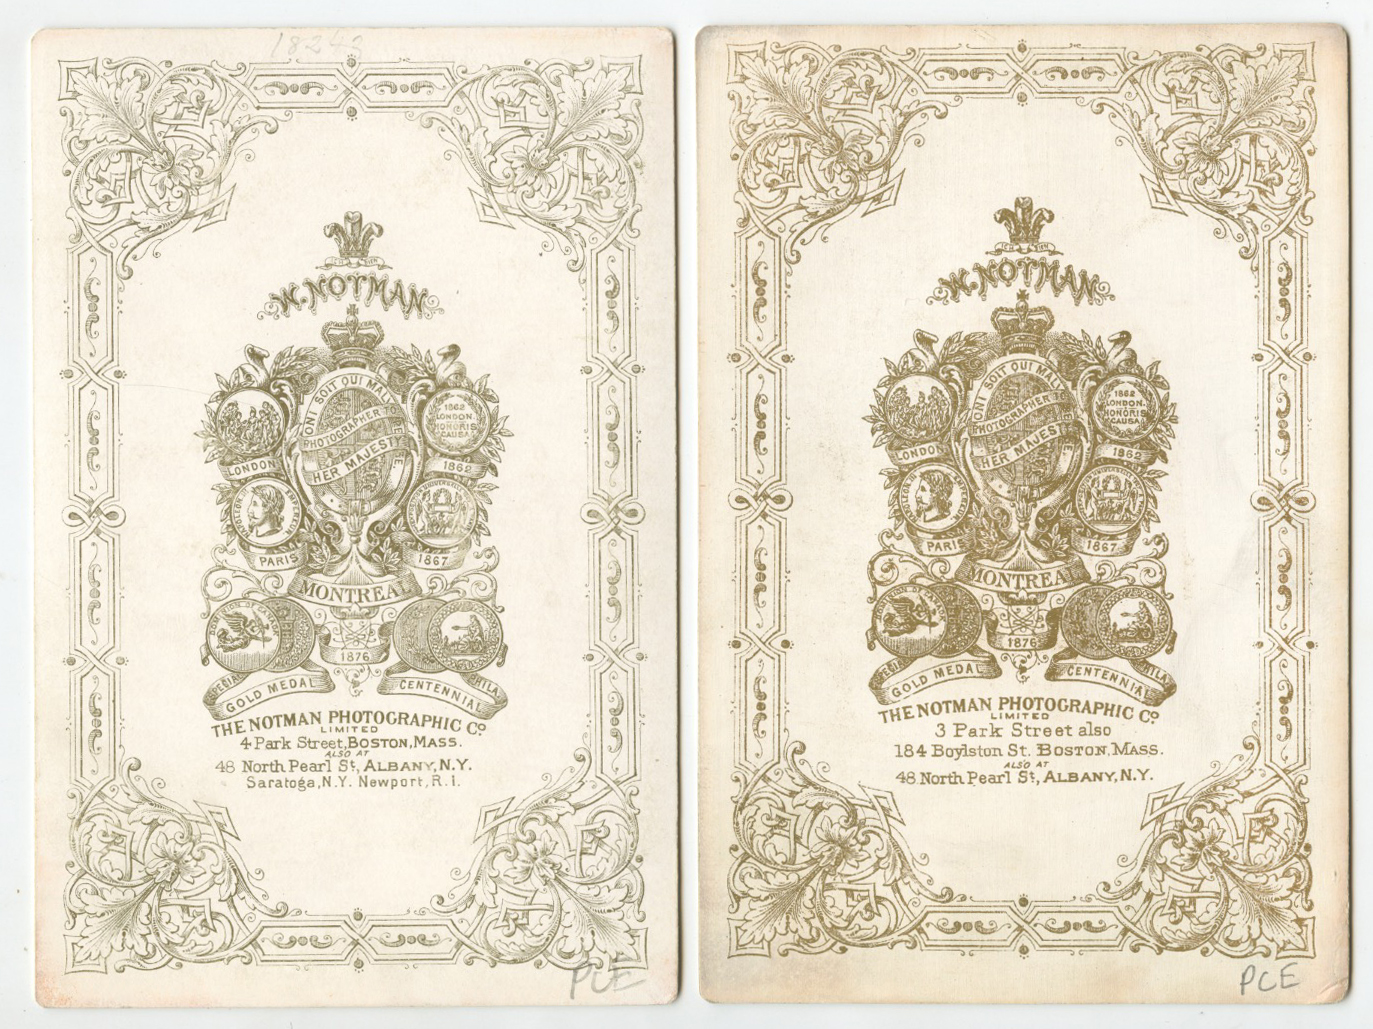 1824
W. NOTMAN
HONI SOIT QUI MAL Y
PHOTOGRAPHER TO
HER MAJESTY
1862
LONDON.
HONORIS
CAUSA
LONDON
1862
NAPOLEON III EMPEREUR
PARIS
1867
MONTREAL
DOMINION OF CANADA
1876
SPECIAL GOLD MEDAL
CENTENNIAL PHILA
THE NOTMAN PHOTOGRAPHIC Co
LIMITED
4 Park Street, BOSTON, MASS.
ALSO AT
48 North Pearl St, ALBANY, N.Y.
Saratoga, N.Y. Newport, R.I.
PCE
W. NOTMAN
HONI SOIT QUI MAL Y
PHOTOGRAPHER TO
HER MAJESTY
1862
LONDON.
HONORIS
CAUSA
LONDON
1862
NAPOLEON III EMPEREUR
PARIS
1867
MONTREAL
DOMINION OF CANADA
1876
SPECIAL GOLD MEDAL
CENTENNIAL PHILA
THE NOTMAN PHOTOGRAPHIC Co
LIMITED
3 Park Street also
184 Boylston St. BOSTON, MASS.
ALSO AT
48 North Pearl St, ALBANY, N.Y.
PCE